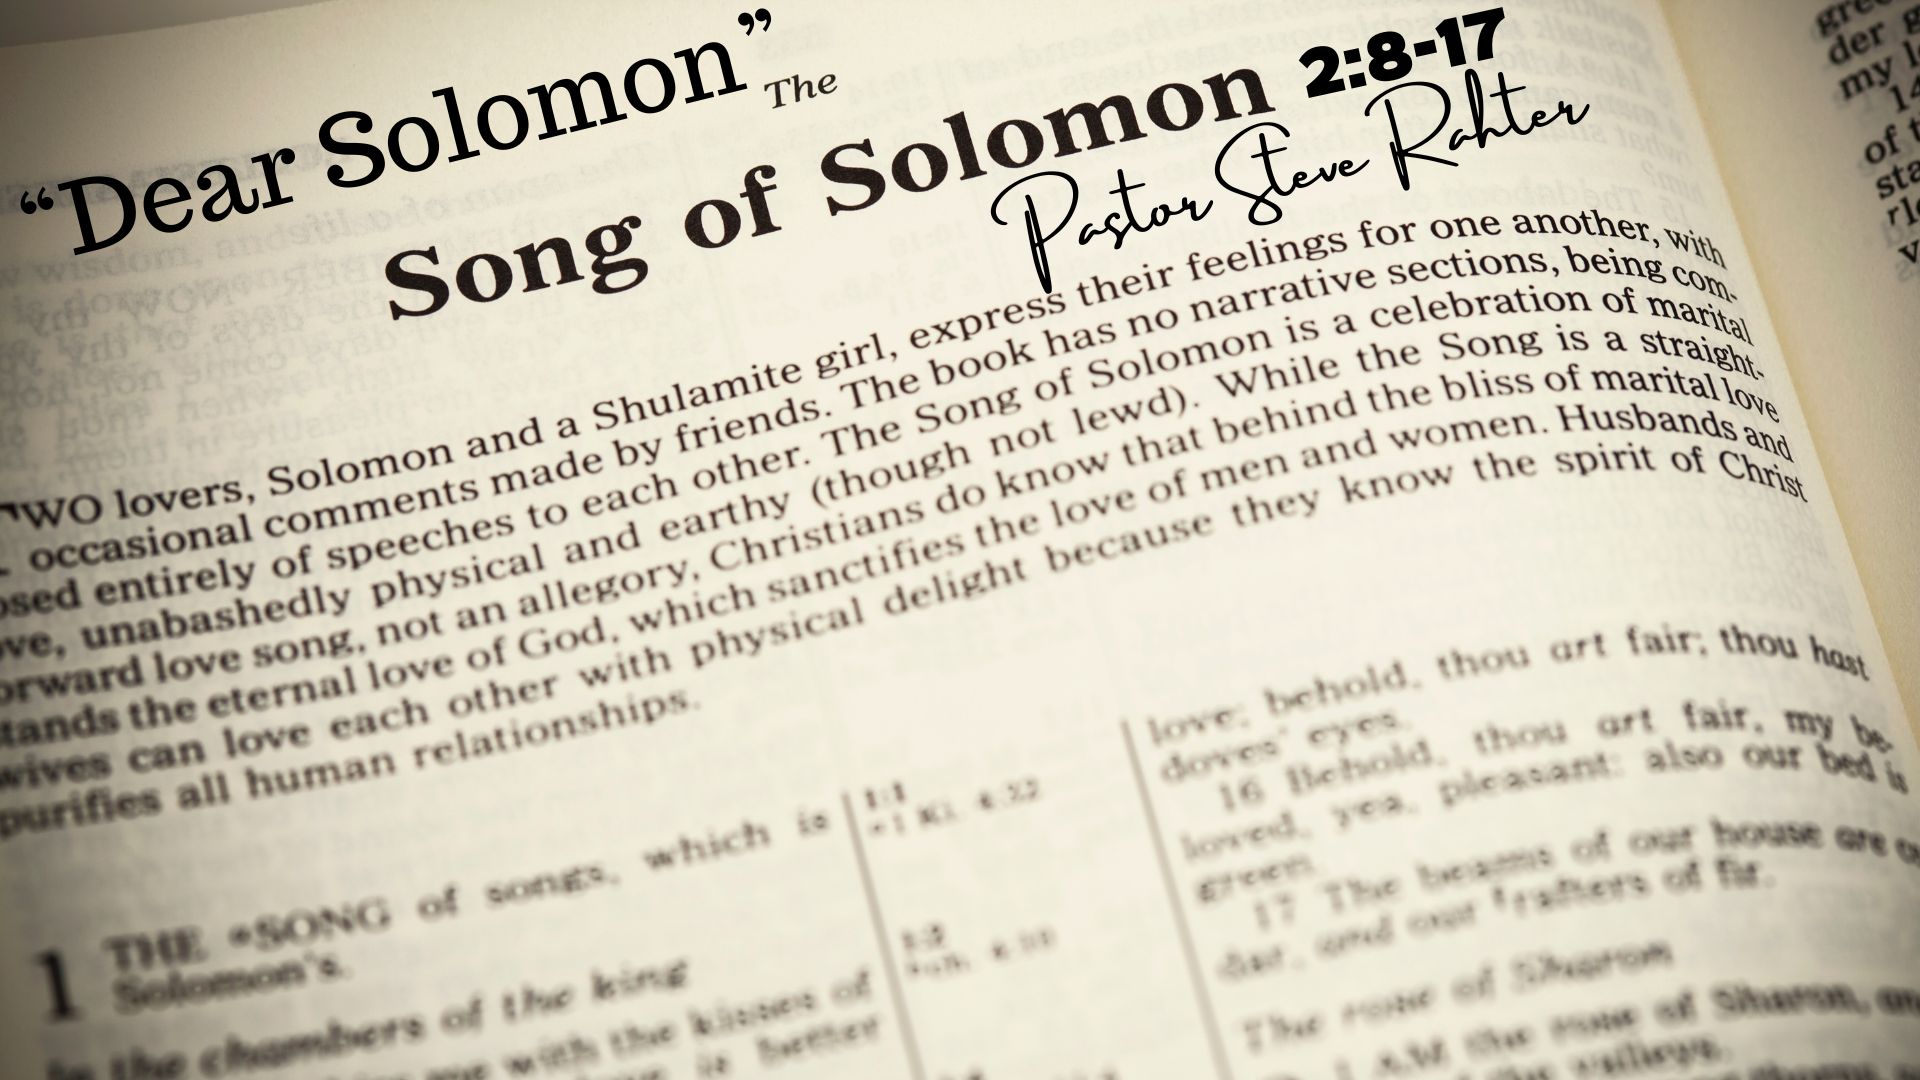 “Dear Solomon”
The
Song of Solomon 2:8-17
Pastor Steve Rahter
WO lovers, Solomon and a Shulamite girl, express their feelings for one another, with
occasional comments made by friends. The book has no narrative sections, being com-
osed entirely of speeches to each other. The Song of Solomon is a celebration of marital
ove, unabashedly physical and earthy (though not lewd). While the Song is a straight-
orward love song, not an allegory, Christians do know that behind the bliss of marital love
tands the eternal love of God, which sanctifies the love of men and women. Husbands and
wives can love each other with physical delight because they know the spirit of Christ
purifies all human relationships.
1 THE *SONG of songs, which is
Solomon's.
In the chambers of the king
me with the kisses of
is better
1:1
*1 Ki. 4:32
1:2
love; behold, thou art fair; thou hast
doves' eyes.
16 Behold, thou art fair, my be-
loved, yea, pleasant: also our bed is
green.
17 The beams of our house are
dar, and our rafters of fir.
The rose of Sharon
I AM the rose of Sharon, an
the valleys.
gre
der g
my l
14
of t
sta
rl
v